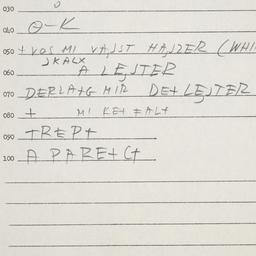 030
040 O-K
050 + VOS MI VAJST HAJZER (WHI
JKALX
060 A LEJTER
070 DERLA+G MIR DE+ LEJTER
080 + MI KE+ ≠ AL+
090 +REP+
100 A PARE+C+